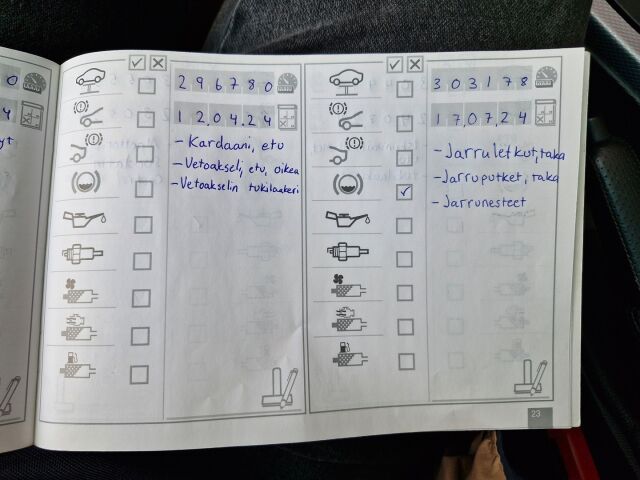 296780
12,04,24
- Kardaani, etu
- Vetoakseli, etu, oikea
- Vetoakselin tukilaakeri
303178
17,07,24
- Jarruletkut, taka
- Jarruputket, taka
- Jarrunesteet
23